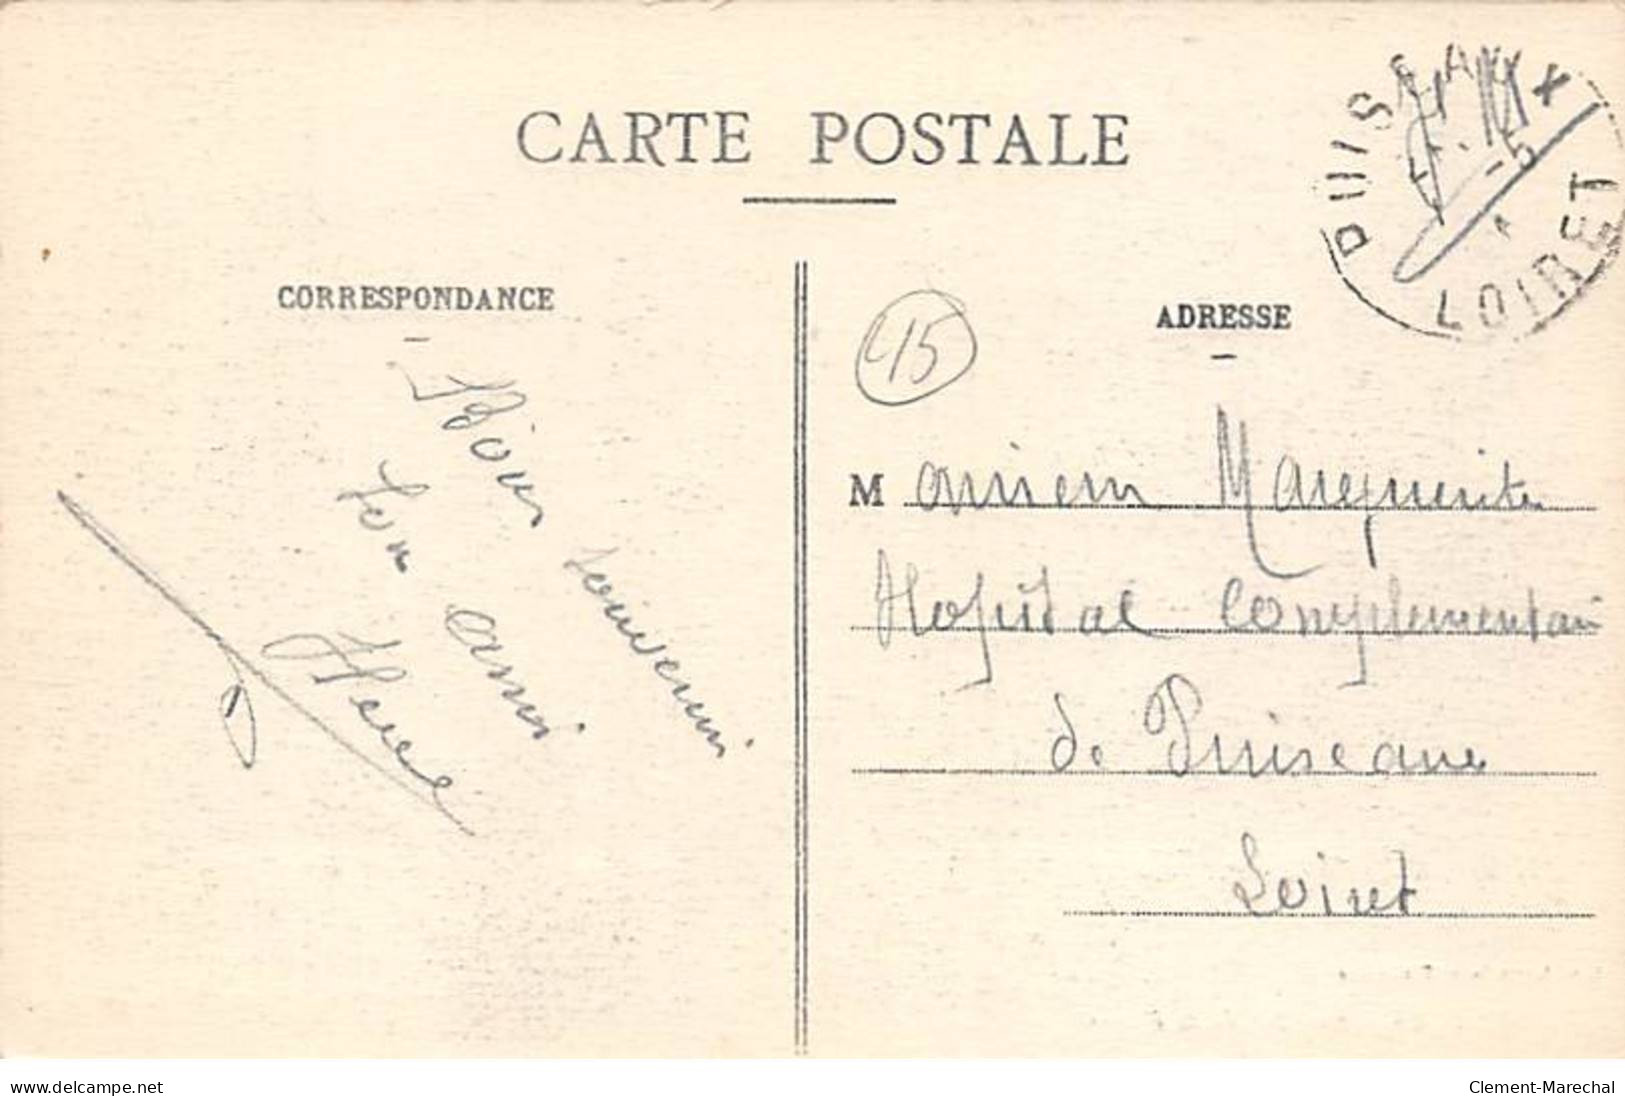 CARTE POSTALE
PUISEAUX
-5
LOIRET
CORRESPONDANCE
ADRESSE
45
Bon souvenir
Ton ami
M Marguerite
Hopital Complementair
de Puiseaux
Loiret
www.delcampe.net
Clement-Marechal